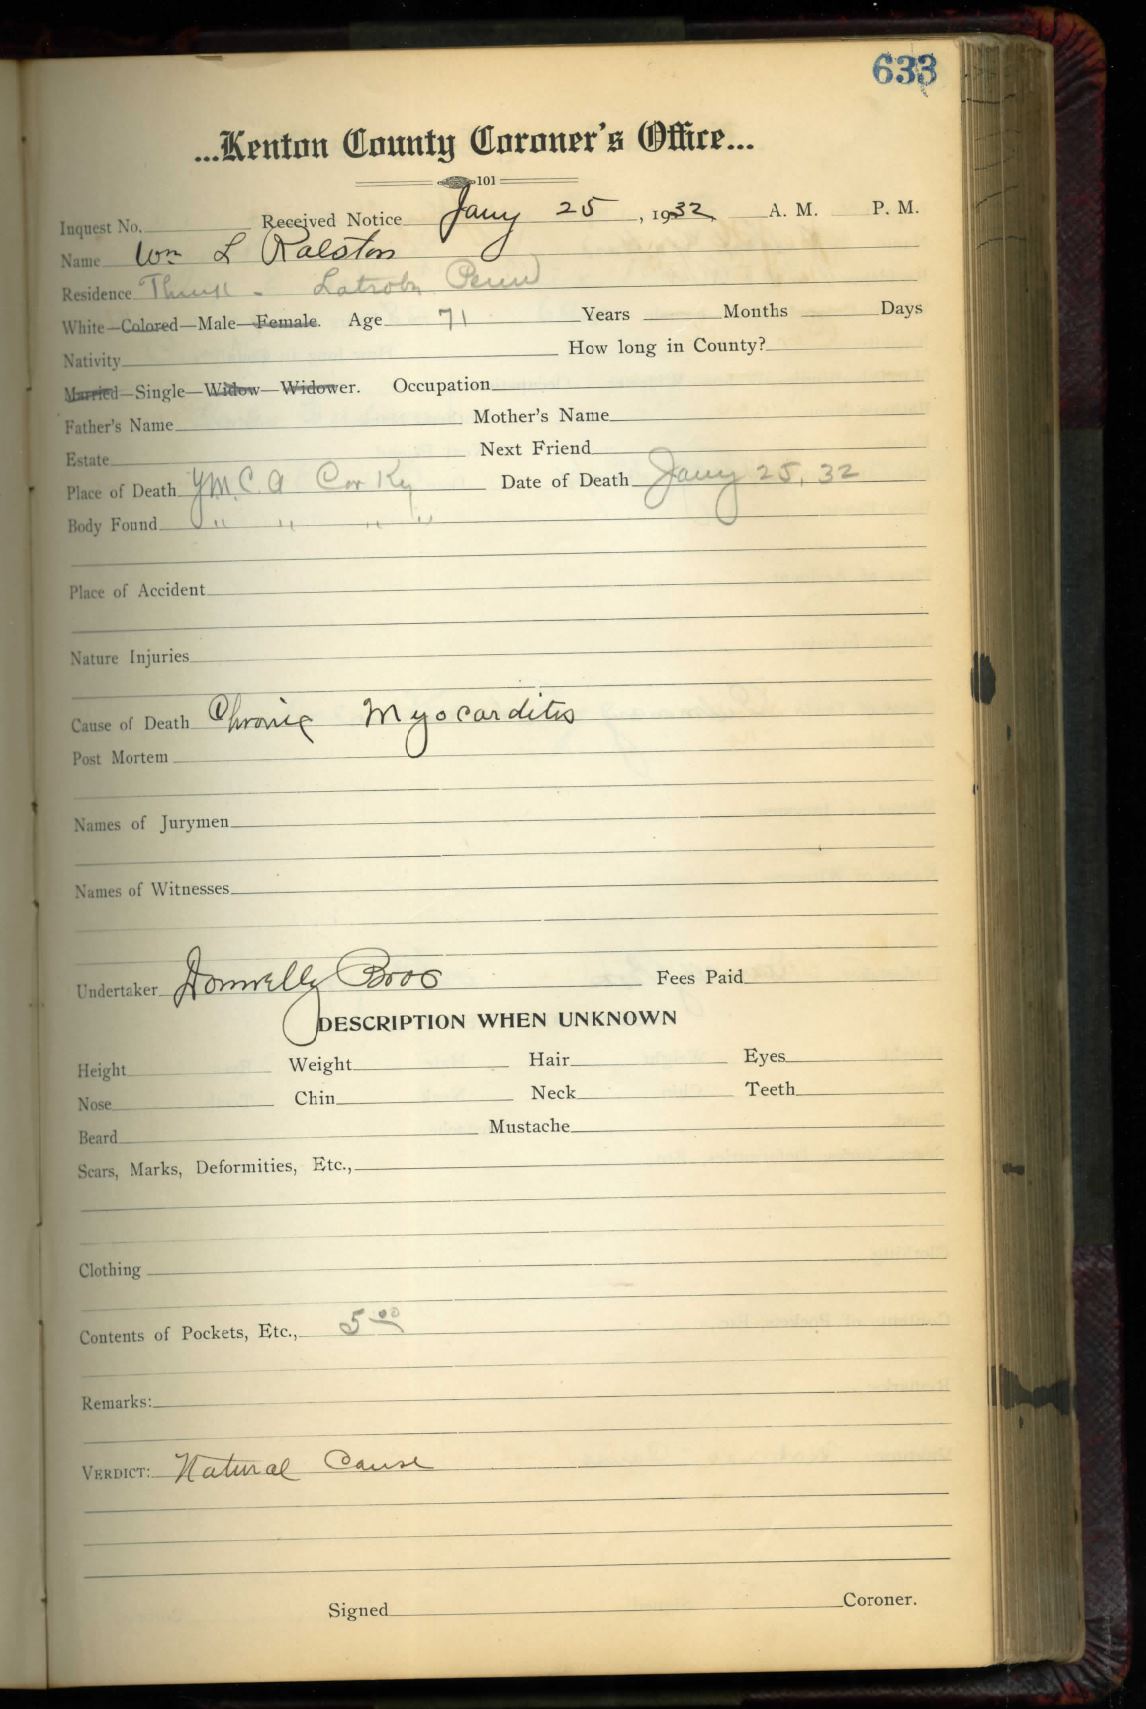 633
...Kenton County Coroner's Office...
101
Inquest No. Received Notice Jany 25, 1932 A. M. P. M.
Name Wm L Ralston
Residence - Latrobe Penn
White—Colored—Male—Female. Age 71 Years Months Days
Nativity How long in County?
Married—Single—Widow—Widower. Occupation
Father's Name Mother's Name
Estate Next Friend
Place of Death Y.M.C.A Cov Ky Date of Death Jany 25, 32
Body Found " " " "
Place of Accident
Nature Injuries
Cause of Death Chronic Myocarditis
Post Mortem
Names of Jurymen
Names of Witnesses
Undertaker Donnelly Bros Fees Paid
DESCRIPTION WHEN UNKNOWN
Height Weight Hair Eyes
Nose Chin Neck Teeth
Beard Mustache
Scars, Marks, Deformities, Etc.,
Clothing
Contents of Pockets, Etc., 5 00
Remarks:
VERDICT: Natural Cause
Signed Coroner.